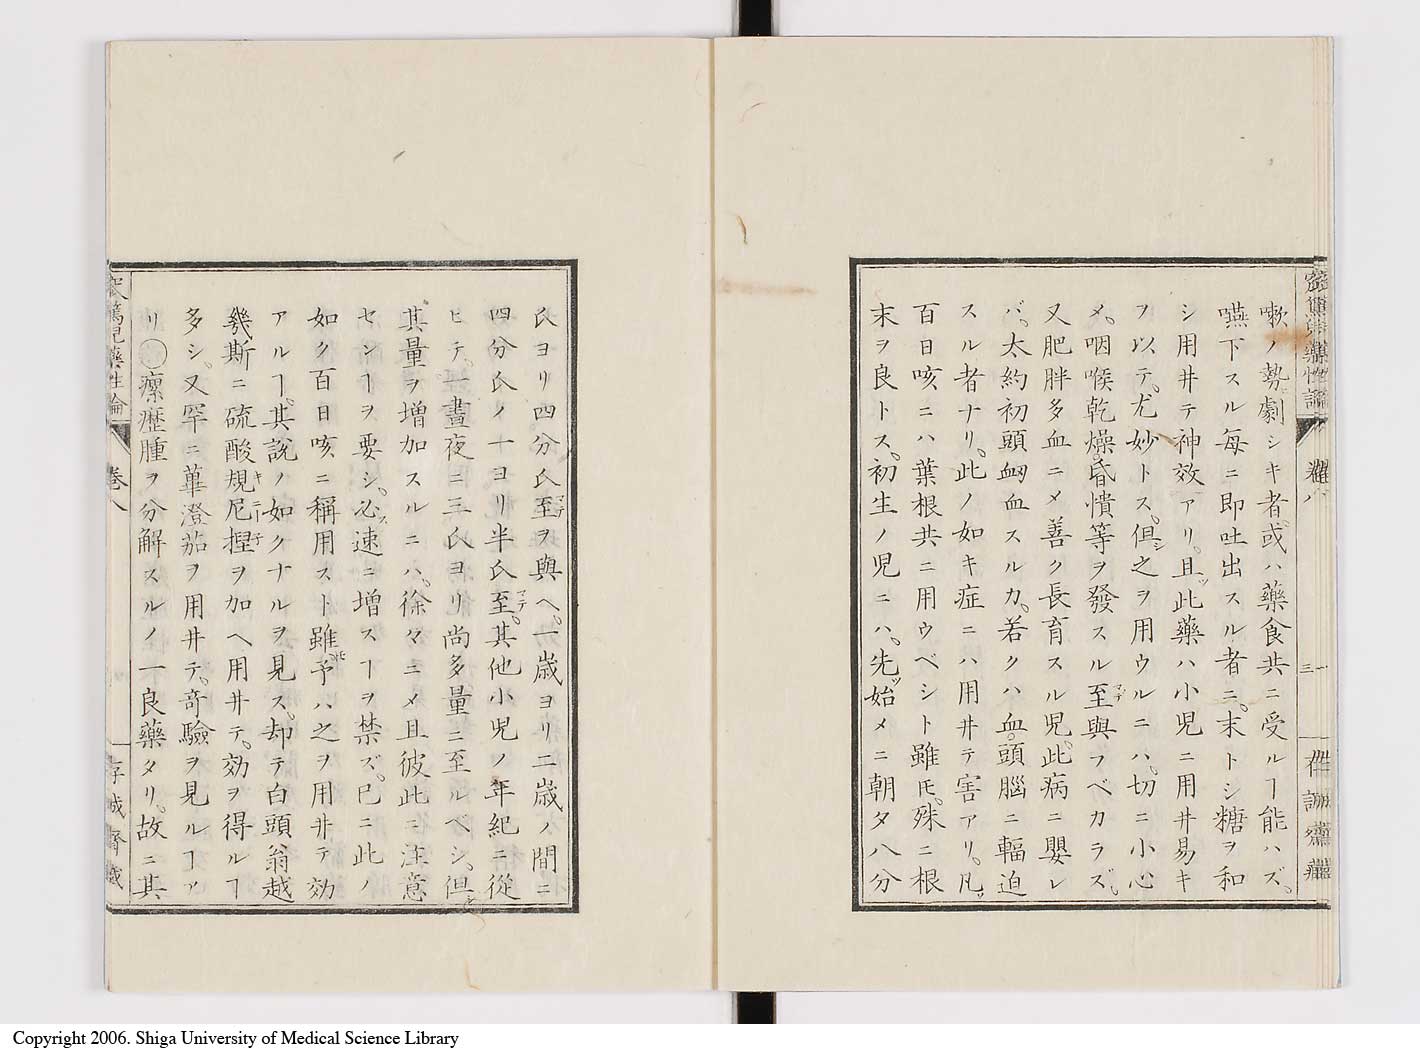 嗽ノ勢劇シキ者。或ハ藥食共ニ受ルヿ能ハズ。
嚥下スル每ニ即吐出スル者ニ。末トシ糖ヲ和
シ用井テ神效アリ。且ツ此藥ハ小児ニ用井易キ
ヲ以テ。尤妙トス。但シ之ヲ用ウルニハ。切ニ小心
メ。咽喉乾燥。昏憒等ヲ發スル至マデ與フベカラズ。
又肥胖多血ニメ善ク長育スル児。此病ニ嬰レ
バ。太約初頭衄血スルカ。若クハ血。頭腦ニ輻迫
スル者ナリ。此ノ如キ症ニハ用井テ害アリ。凡ソ
百日咳ニハ葉根共ニ用ウベシト雖𪜈。殊ニ根
末ヲ良トス。初生ノ児ニハ。先ヅ始メニ朝夕八分
氏ヨリ四分氏至マデヲ與ヘ。一歳ヨリ二歳ノ間ニ
四分氏ノ一ヨリ半氏至マデ。其他小児ノ年紀ニ從
ヒテ。一晝夜ニ三氏ヨリ尚多量ニ至ルベシ。但シ
其量ヲ增加スルニハ。徐々ニメ且彼此ニ注意
センヿヲ要シ。必ズ速ニ增スヿヲ禁ズ。已ニ此ノ
如ク百日咳ニ稱用スト雖𪜈予ハ之ヲ用井テ効
アルヿ。其說ノ如クナルヲ見ス。却テ白頭翁越
幾斯ニ硫酸規尼捏キニーテヲ加ヘ用井テ。効ヲ得ルヿ
多シ。又罕ニ蓽澄茄ヲ用井テ。奇驗ヲ見ルヿア
リ○瘰癧腫ヲ分解スルノ一良藥タリ。故ニ其
藥性論
卷八
存誠齋藏
Copyright 2006. Shiga University of Medical Science Library